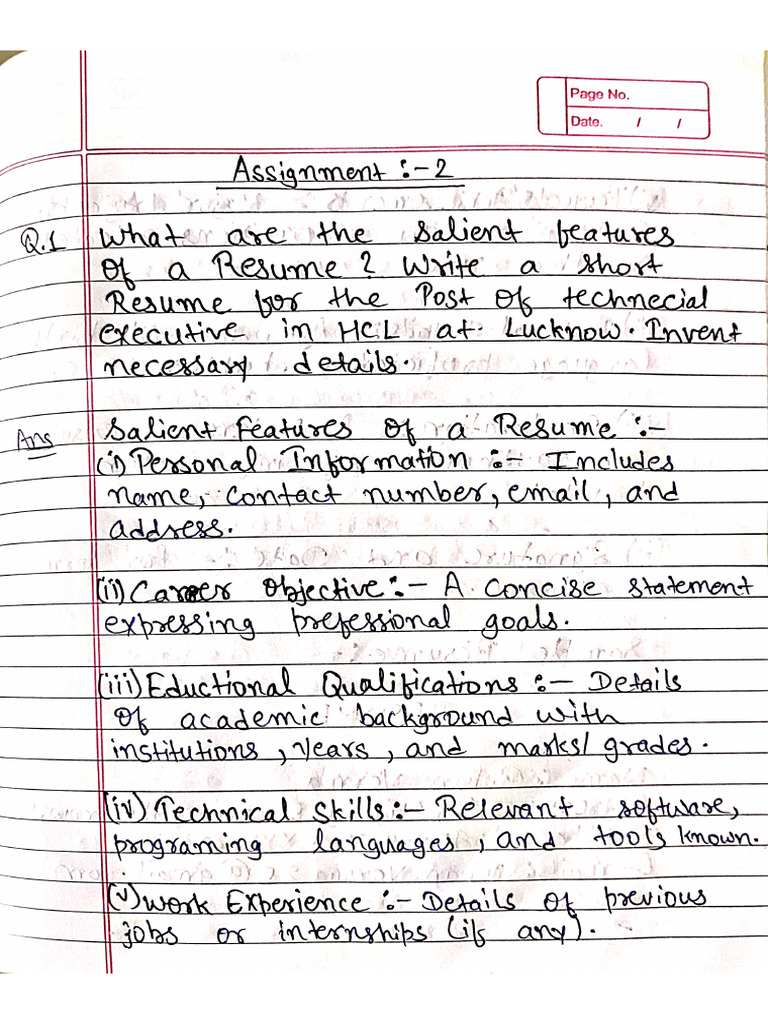 Page No.
Date. / /
Assignment :- 2
Q.1 What are the salient features
of a Resume ? Write a short
Resume for the Post of technecial
executive in HCL at Lucknow. Invent
necessary details.
Ans Salient Features of a Resume :-
(i) Personal Information :- Includes
name, contact number, email, and
address.
(ii) Career Objective :- A concise statement
expressing prefessional goals.
(iii) Eductional Qualifications :- Details
of academic background with
institutions, years, and marks/grades.
(iv) Technical Skills :- Relevant software,
programing languages, and tools known.
(v) Work Experience :- Details of previous
jobs or internships (if any).